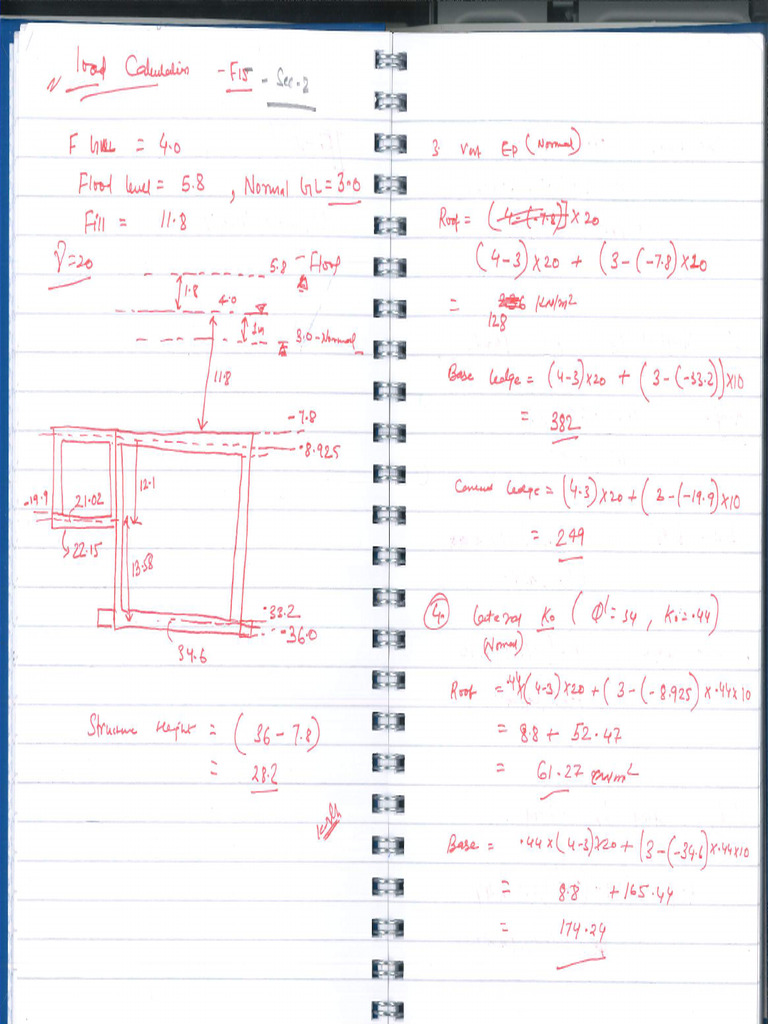 Load Calculation - F15 - Sec. 2
F level = 4.0
Flood level = 5.8 , Normal GL = 3.0
Fill = 11.8
γ = 20
5.8 - Flood
1.8
4.0
1m
3.0 - Normal
11.8
-7.8
-8.925
12.1
-19.9
21.02
22.15
13.58
-33.2
-36.0
34.6
Structure Height = (36 - 7.8)
= 28.2
3. Vert EP (Normal)
Roof = (4-(-7.8)] x 20
(4-3) x 20 + (3-(-7.8) x 20
= KN/m²
128
Base ledge = (4-3) x 20 + (3-(-33.2)) x 10
= 382
ledge = (4.3) x 20 + (3-(-19.9) x 10
= 249
4. Lateral K₀ ( Φ' = 34 , K₀ = .44)
(Normal)
Roof = .44 x (4-3) x 20 + (3-(-8.925) x .44 x 10
= 8.8 + 52.47
= 61.27 KN/m²
Base = .44 x (4-3) x 20 + (3-(-34.6) x .44 x 10
= 8.8 + 165.44
= 174.24